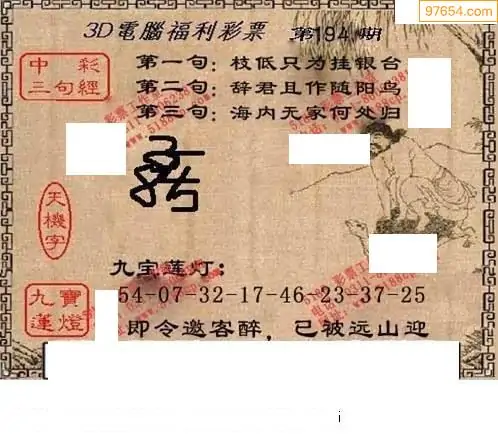 97654.com
3D電腦福利彩票 第194期
中彩
三句經
第一句：枝低只为挂银台
第二句：辞君且作随阳鸟
第三句：海内无家何处归
天機字
九宝莲灯：
九寶
蓮燈
54-07-32-17-46 23-37-25
即令邀客醉，已被远山迎
i